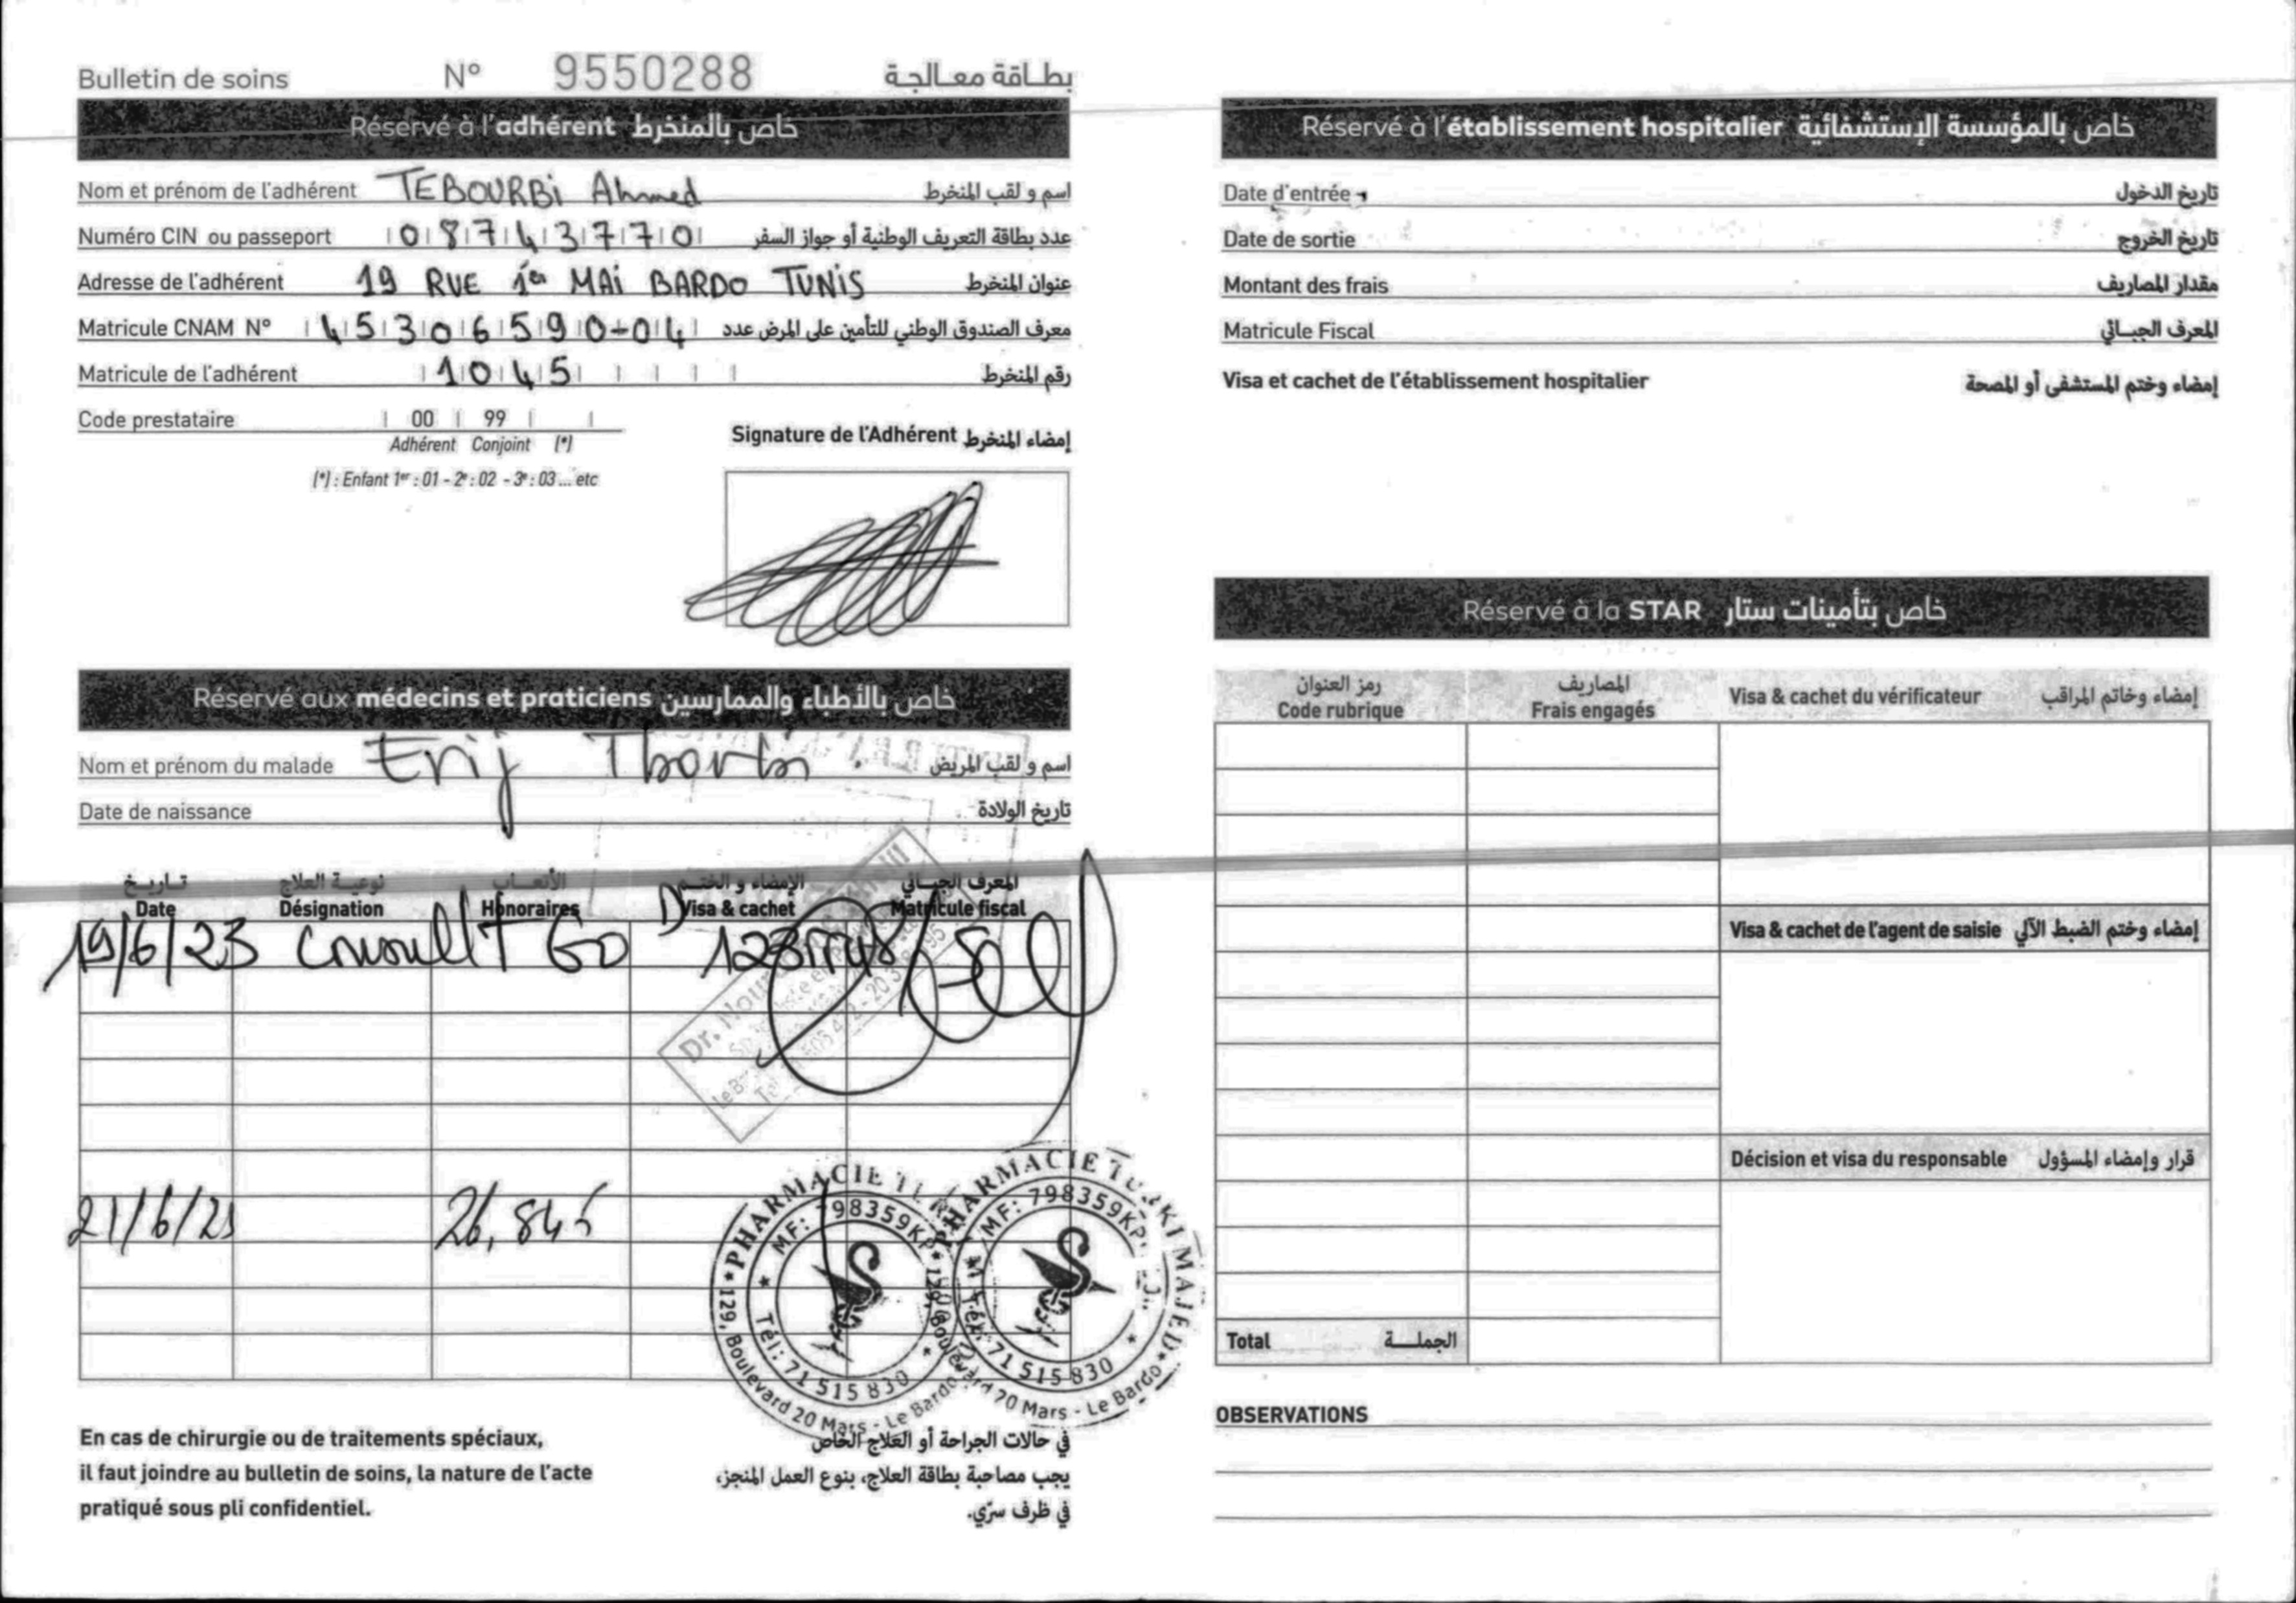 Bulletin de soins N° 9550288 بطاقة معالجة
Réservé à l'adhérent خاص بالمنخرط
Nom et prénom de l'adhérent TEBOURBi Ahmed اسم و لقب المنخرط
Numéro CIN ou passeport 08743770 عدد بطاقة التعريف الوطنية أو جواز السفر
Adresse de l'adhérent 19 RUE 1er MAi BARDO TUNiS عنوان المنخرط
Matricule CNAM N° 45306590-04 معرف الصندوق الوطني للتأمين على المرض عدد
Matricule de l'adhérent 1045 رقم المنخرط
Code prestataire 00 99
Adhérent Conjoint (*)
(*) : Enfant 1er : 01 - 2e : 02 - 3e : 03 ... etc
Signature de l'Adhérent إمضاء المنخرط
Réservé aux médecins et praticiens خاص بالأطباء والممارسين
Nom et prénom du malade Erij اسم و لقب المريض
Date de naissance تاريخ الولادة
تاريخ نوعية العلاج الأتعاب الإمضاء و الختم المعرف الجبائي
Date Désignation Honoraires Visa & cachet Matricule fiscal
19/6/23 Consult 60
Dr.
21/6/23 26,845
PHARMACIE TURKI MAJED
MF: 798359KP
Tél: 71 515 830
129, Boulevard 20 Mars - Le Bardo
PHARMACIE TURKI MAJED
MF: 798359KP
Tél: 71 515 830
129, Boulevard 20 Mars - Le Bardo
En cas de chirurgie ou de traitements spéciaux,
il faut joindre au bulletin de soins, la nature de l'acte
pratiqué sous pli confidentiel.
في حالات الجراحة أو العلاج الخاص
يجب مصاحبة بطاقة العلاج، بنوع العمل المنجز،
في ظرف سرّي.
Réservé à l'établissement hospitalier خاص بالمؤسسة الإستشفائية
Date d'entrée تاريخ الدخول
Date de sortie تاريخ الخروج
Montant des frais مقدار المصاريف
Matricule Fiscal المعرف الجبائي
Visa et cachet de l'établissement hospitalier إمضاء وختم المستشفى أو المصحة
Réservé à la STAR خاص بتأمينات ستار
رمز العنوان المصاريف
Code rubrique Frais engagés Visa & cachet du vérificateur إمضاء وخاتم المراقب
Visa & cachet de l'agent de saisie إمضاء وختم الضبط الآلي
Décision et visa du responsable قرار وإمضاء المسؤول
Total الجملة
OBSERVATIONS